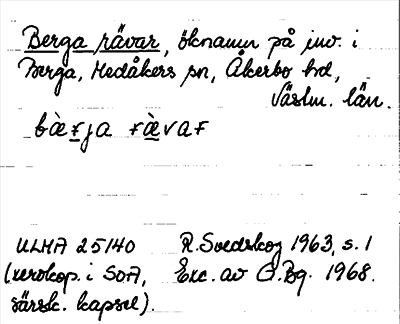 Berga rävar, öknamn på inv. i
Berga, Medåkers sn, Åkerbo hd,
Västm. län.
bæ̀r̵ja r̵æ̀var̵
ULMA 25140 R. Svedskog 1963, s. 1
(xerokop. i SOA, Exc. av G. Bg. 1968.
särsk. kapsel).